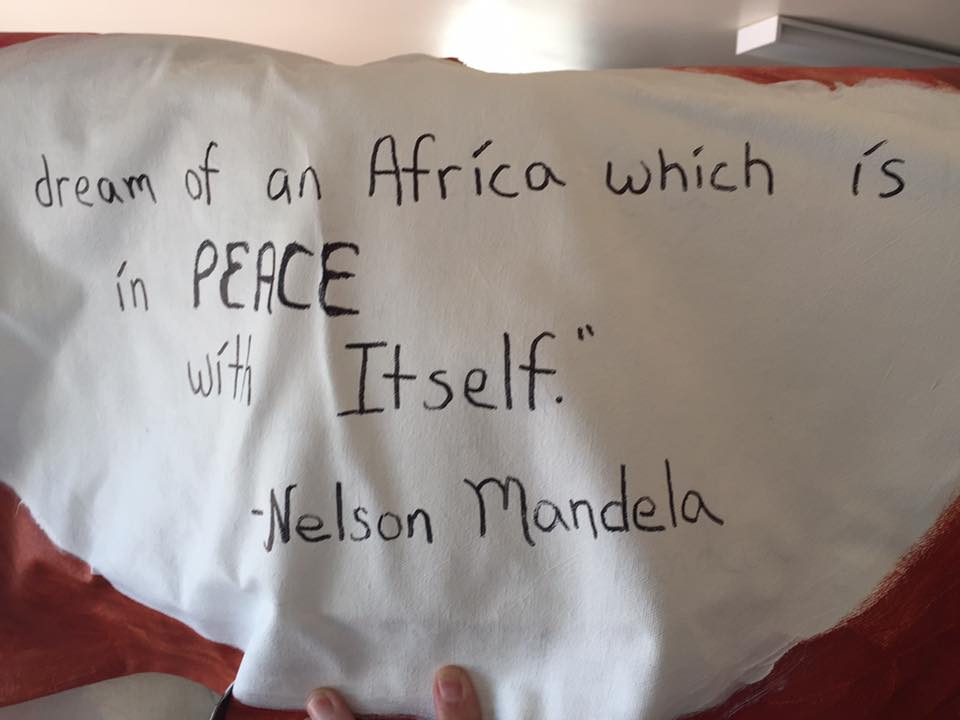 dream of an Africa which is
in PEACE
with Itself."
-Nelson Mandela